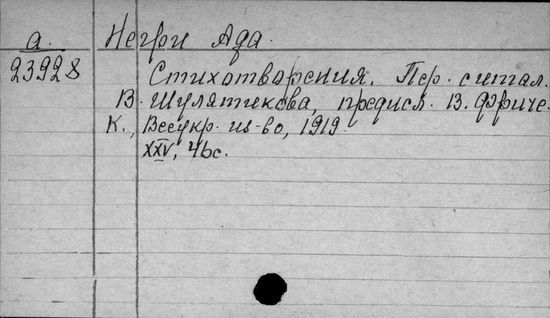 а. Негри Ада.
23928
Стихотворения. Пер. с итал.
В. Шулятикова, предисл. В. Фриче.
К., Всеукр. из-во, 1919.
XXV, 46с.